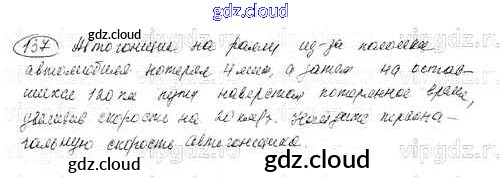 gdz.cloud
gdz.cloud
137 Автогонщик на ралли из-за поломки
автомобиля потерял 4 мин, а затем на остав-
шихся 120 км пути наверстал потерянное время,
увеличив скорость на 20 км/ч. Найдите первона-
чальную скорость автогонщика.
gdz.cloud